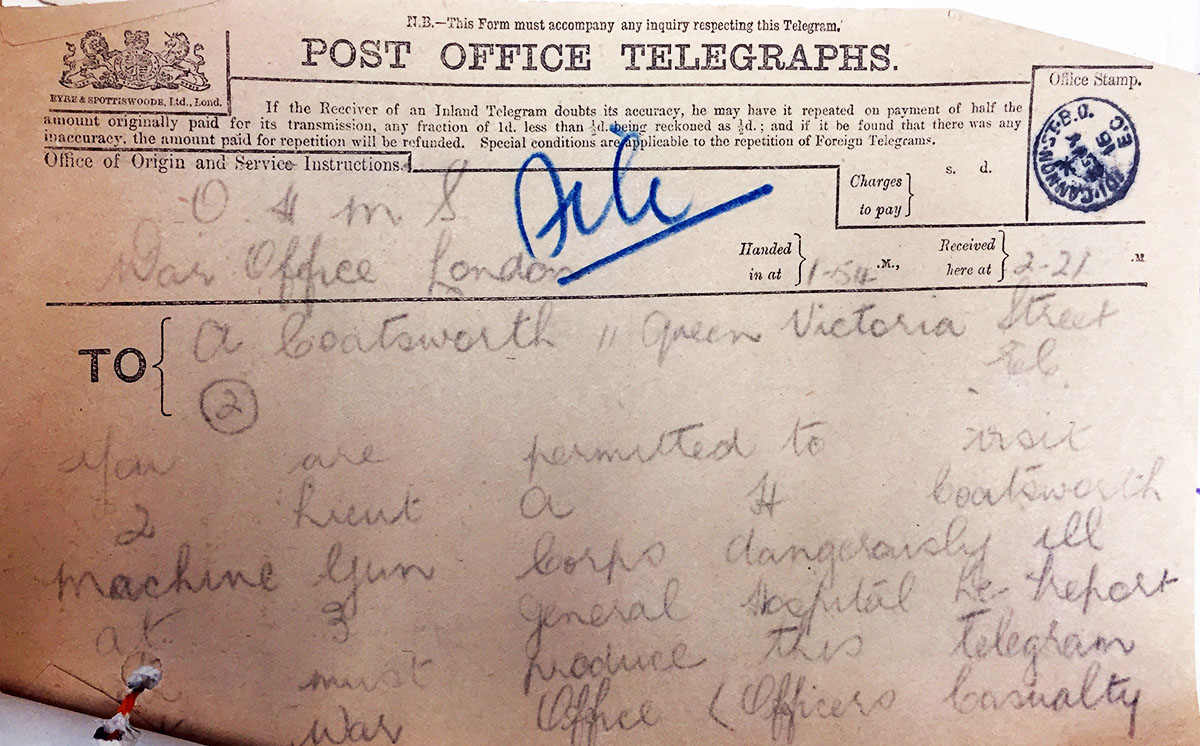 N.B.—This Form must accompany any inquiry respecting this Telegram.
POST OFFICE TELEGRAPHS.
EYRE & SPOTTISWOODE, Ltd., Lond.
Office Stamp.
If the Receiver of an Inland Telegram doubts its accuracy, he may have it repeated on payment of half the
amount originally paid for its transmission, any fraction of 1d. less than ½d. being reckoned as ½d.; and if it be found that there was any
inaccuracy, the amount paid for repetition will be refunded. Special conditions are applicable to the repetition of Foreign Telegrams.
Office of Origin and Service Instructions.
Charges to pay } s. d.
O H M S
War Office London
Handed in at } 1-54 .M., Received here at } 2-21 .M
TO { A Coatsworth 11 Queen Victoria Street
EC
2
You are permitted to visit
2 Lieut A H Coatsworth
Machine Gun Corps dangerously ill
at 3 General Hospital Le Treport
must produce this telegram
War Office (Officers Casualty